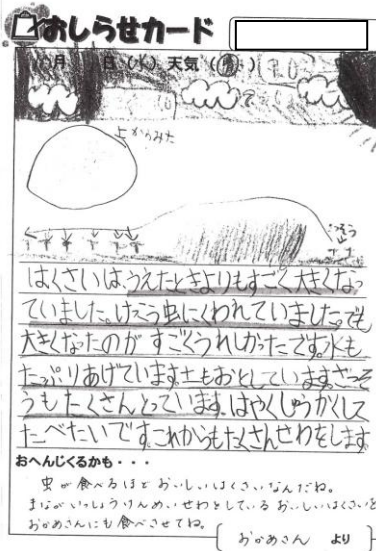 おしらせカード
月 日(水) 天気(
上からみた
ざっそう
はくさいは、うえたときよりもすごく大きくなっ
ていました。けっこう虫にくわれていました。でも
大きくなったのが すごくうれしかったです。水も
たっぷりあげています。土もおとしています。ざっそ
うもたくさんとっています。はやくしゅうかくして
たべたいです。これからもたくさんせわをします
おへんじくるかも・・・
虫が食べるほど おいしいはくさいなんだね。
まなが いっしょうけんめい せわをしている おいしいはくさいを
おかめさんにも食べさせてね。
おかめさん より